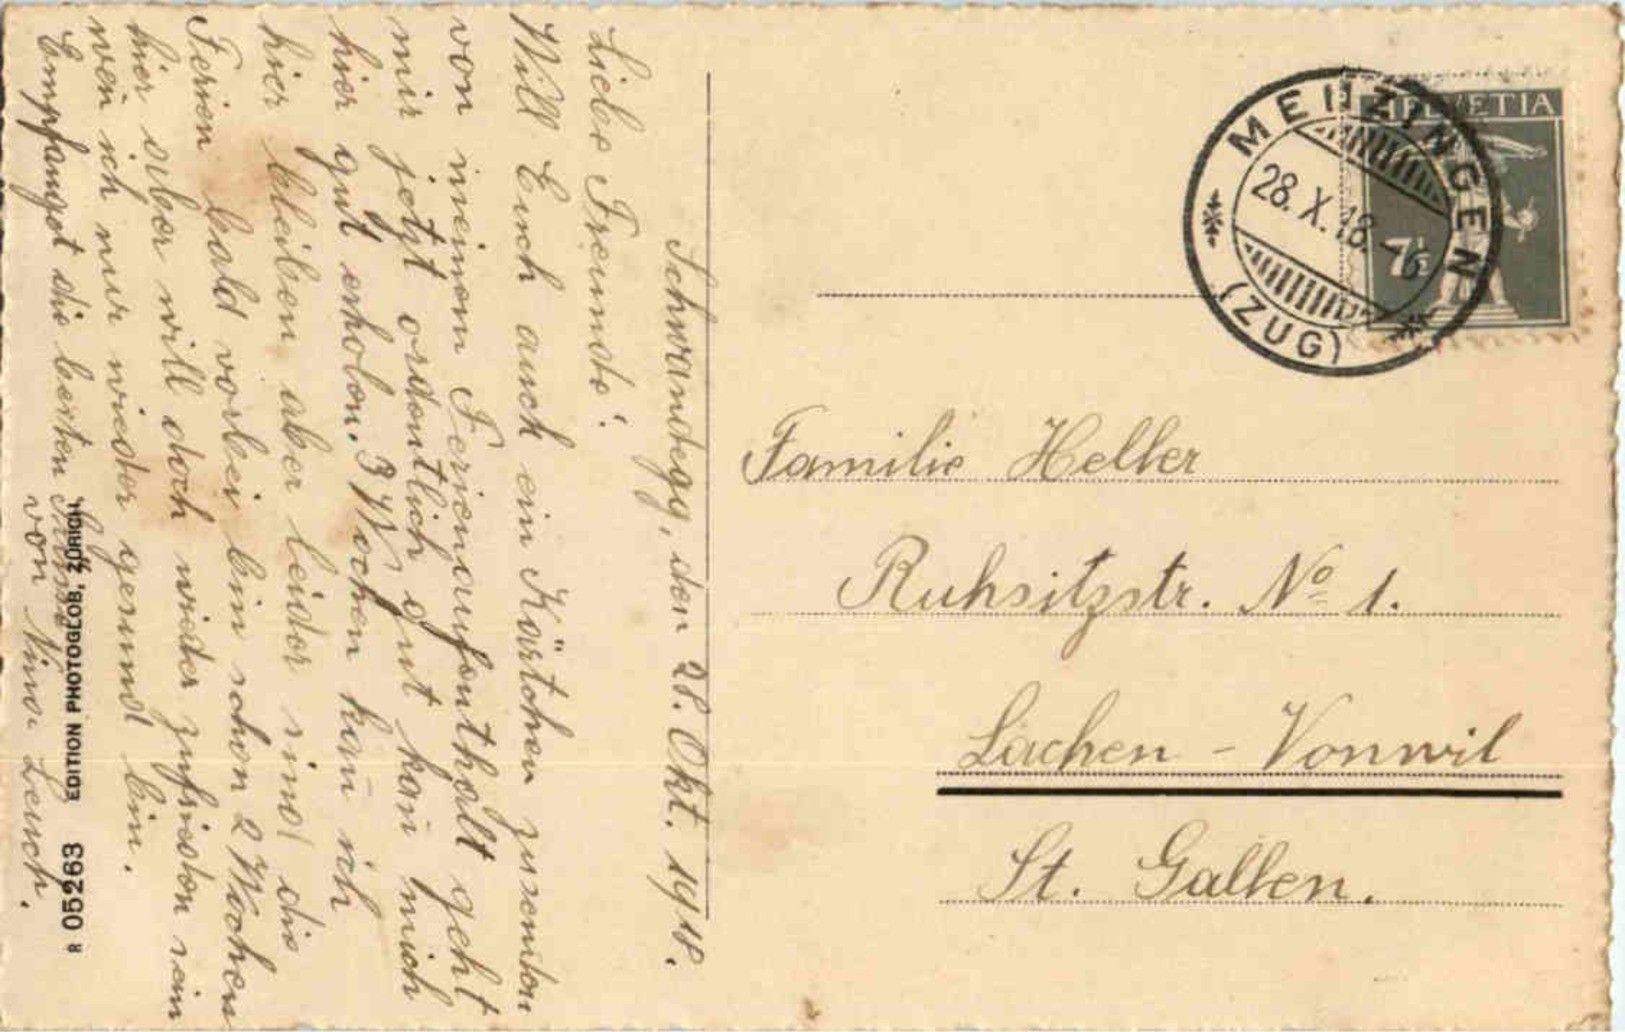 Schwandegg, den 28. Okt. 1918.
Liebe Freunde!
Will Euch auch ein Kärtchen zusenden
von meinem Ferienaufenthalt geht
mir jetzt ordentlich gut kañ mich
hier gut erholen. 3 Wochen kañ ich
hier bleiben aber leider sind die
Ferien bald vorbei bin schon 2 Wochen
hier aber will doch wieder zufrieden sein
weñ ich nur wieder gesund bin.
Empfanget die besten Grüsse
von Nina Lesch.
R 05263 EDITION PHOTOGLOB, ZÜRICH.
HELVETIA
7½
MENZINGEN
28. X. 18. - 6
(ZUG)
Familie Heller
Ruhsitzstr. No 1.
Lachen - Vonwil
St. Gallen.